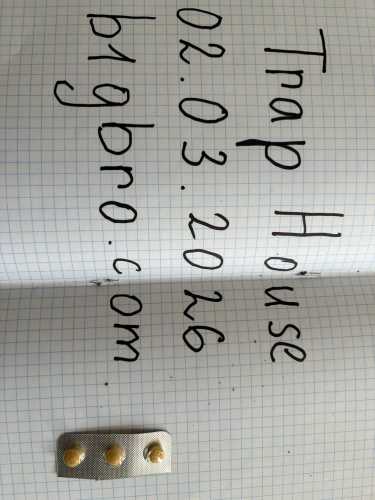 Trap House
02.03.2026
b1gbro.com